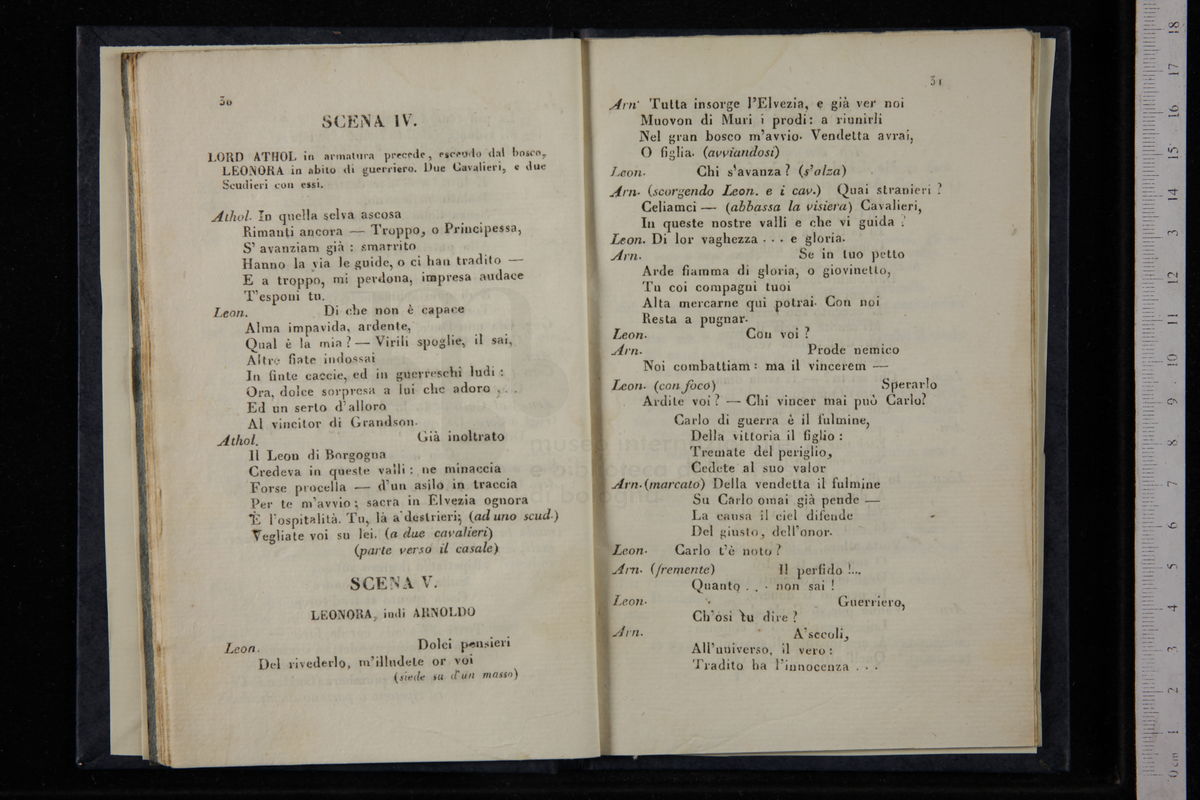 30
SCENA IV.
LORD ATHOL in armatura precede, escendo dal bosco,
LEONORA in abito di guerriero. Due Cavalieri, e due
Scudieri con essi.
Athol. In quella selva ascosa
Rimanti ancora — Troppo, o Principessa,
S' avanziam già : smarrito
Hanno la via le guide, o ci han tradito —
E a troppo, mi perdona, impresa audace
T'esponi tu.
Leon. Di che non è capace
Alma impavida, ardente,
Qual è la mia ? — Virili spoglie, il sai,
Altre fiate indossai
In finte caccie, ed in guerreschi ludi :
Ora, dolce sorpresa a lui che adoro . . .
Ed un serto d'alloro
Al vincitor di Grandson.
Athol. Già inoltrato
Il Leon di Borgogna
Credeva in queste valli : ne minaccia
Forse procella — d'un asilo in traccia
Per te m'avvio ; sacra in Elvezia ognora
È l'ospitalità. Tu, là a'destrieri; (ad uno scud.)
Vegliate voi su lei. (a due cavalieri)
(parte verso il casale)
SCENA V.
LEONORA, indi ARNOLDO
Leon. Dolci pensieri
Del rivederlo, m'illudete or voi
(siede su d'un masso)
31
Arn. Tutta insorge l'Elvezia, e già ver noi
Muovon di Muri i prodi: a riunirli
Nel gran bosco m'avvio. Vendetta avrai,
O figlia. (avviandosi)
Leon. Chi s'avanza ? (s'alza)
Arn. (scorgendo Leon. e i cav.) Quai stranieri ?
Celiamci — (abbassa la visiera) Cavalieri,
In queste nostre valli e che vi guida ?
Leon. Di lor vaghezza . . . e gloria.
Arn. Se in tuo petto
Arde fiamma di gloria, o giovinetto,
Tu coi compagni tuoi
Alta mercarne qui potrai. Con noi
Resta a pugnar.
Leon. Con voi ?
Arn. Prode nemico
Noi combattiam : ma il vincerem —
Leon. (con foco) Sperarlo
Ardite voi ? — Chi vincer mai può Carlo?
Carlo di guerra è il fulmine,
Della vittoria il figlio :
Tremate del periglio,
Cedete al suo valor
Arn. (marcato) Della vendetta il fulmine
Su Carlo omai già pende —
La causa il ciel difende
Del giusto, dell'onor.
Leon. Carlo t'è noto ?
Arn. (fremente) Il perfido !...
Quanto . . . non sai !
Leon. Guerriero,
Ch'osi tu dire ?
Arn. A'secoli,
All'universo, il vero :
Tradito ha l'innocenza . . .